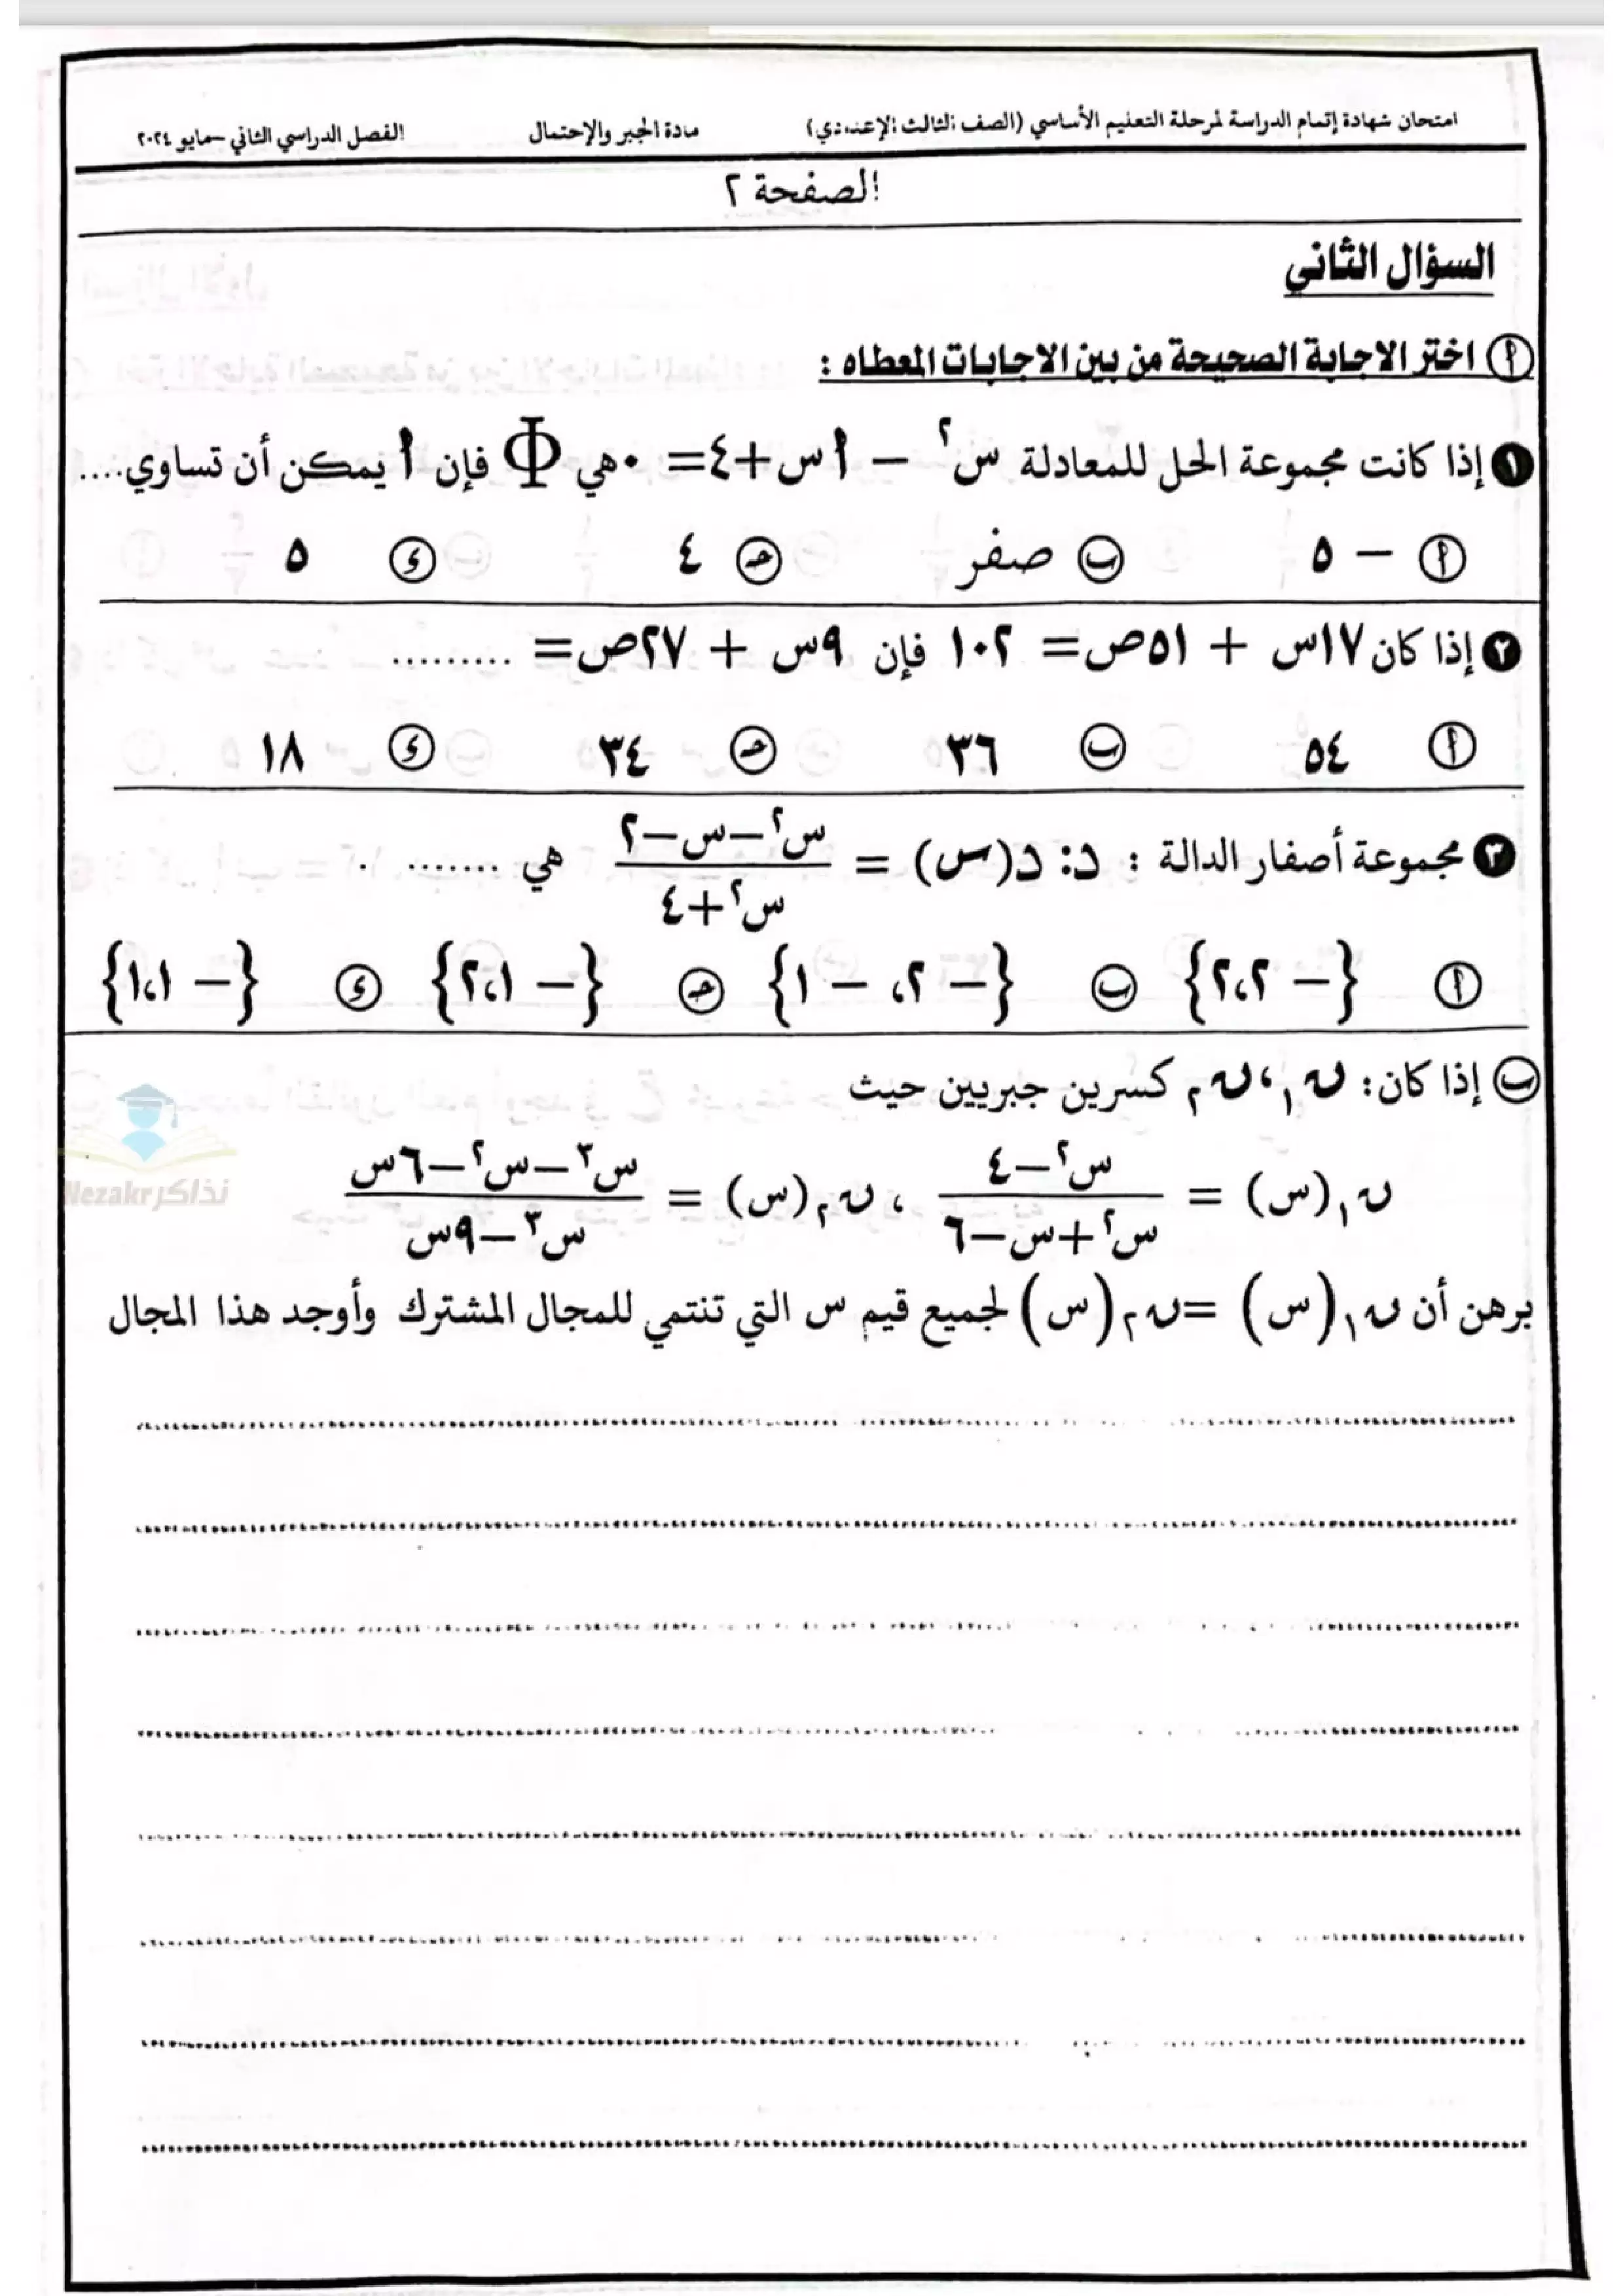 امتحان شهادة إتمام الدراسة لمرحلة التعليم الأساسي (الصف الثالث الإعدادي) مادة الجبر والإحتمال الفصل الدراسي الثاني –مايو ٢٠٢٤
الصفحة ٢
السؤال الثانى
أ اختر الاجابة الصحيحة من بين الاجابات المعطاه :
١ إذا كانت مجموعة الحل للمعادلة س² – أس+٤= ٠هي Φ فإن أ يمكن أن تساوي....
أ – ٥ ب صفر ج ٤ د ٥
٢ إذا كان ١٧س + ٥١ص= ١٠٢ فإن ٩س + ٢٧ص= .........
أ ٥٤ ب ٣٦ ج ٣٤ د ١٨
٣ مجموعة أصفار الدالة : د: د(س) = (س²–س–٢)/(س²+٤) هي ........ .
أ {– ٢،٢} ب {– ٢، – ١} ج {– ٢،١} د {– ١،١}
ب إذا كان: ن١، ن٢ كسرين جبريين حيث
ن١(س) = (س²–٤)/(س²+س–٦) ، ن٢(س) = (س³–س²–٦س)/(س³–٩س)
برهن أن ن١(س) =ن٢(س) لجميع قيم س التي تنتمي للمجال المشترك وأوجد هذا المجال
نذاكر Nezakr